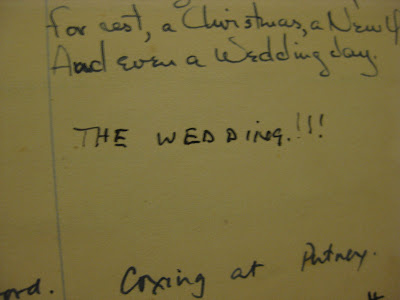 for rest, a Christmas, a New Y
And even a Wedding day.
THE WEDDING.!!!
ord. Coxing at Putney.